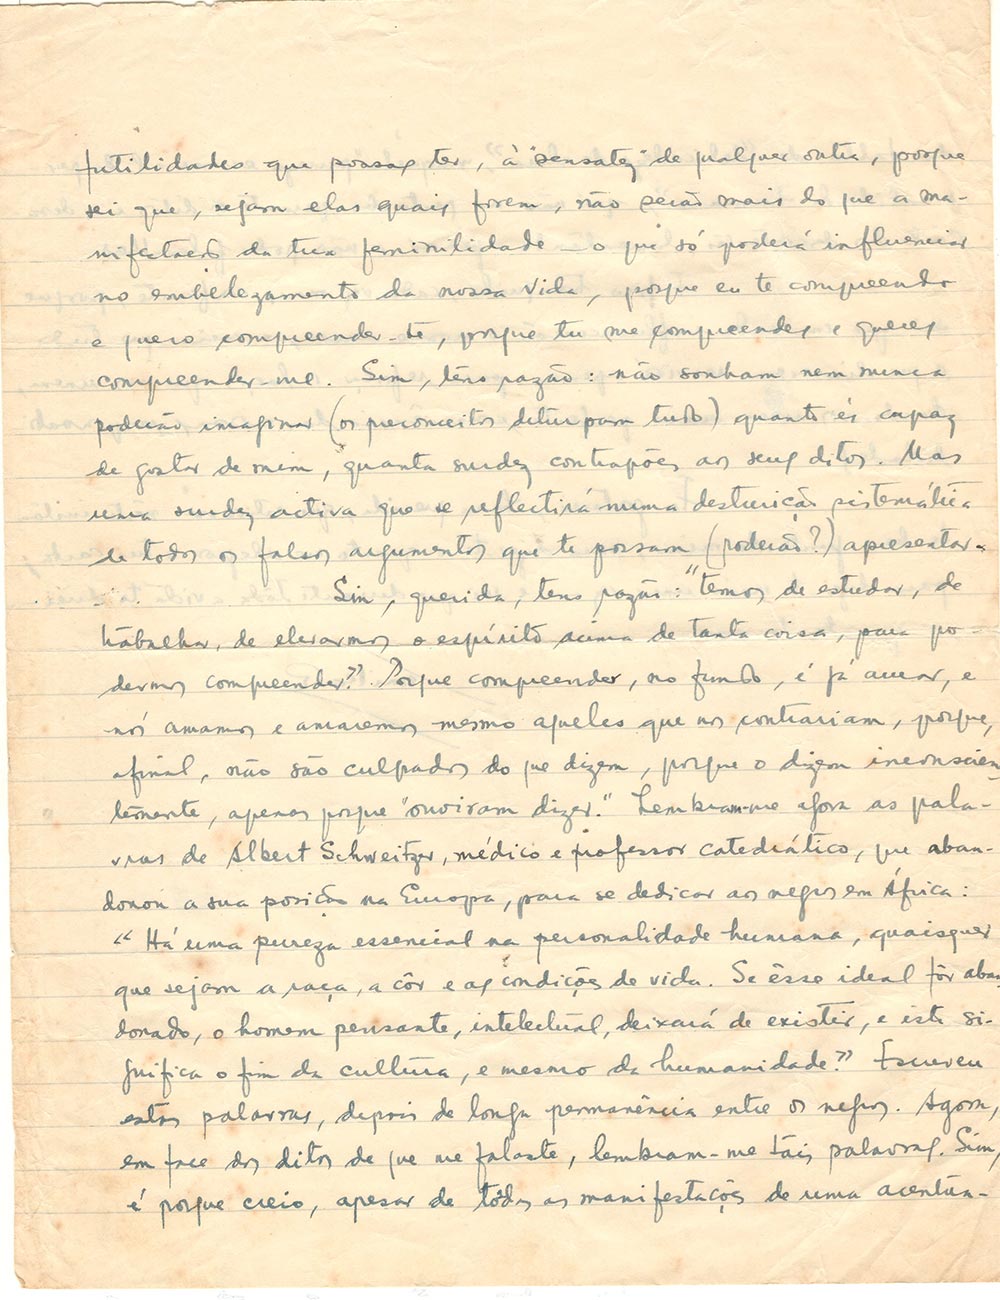 futilidades que possas ter, à "sensatez" de qualquer outra, porque
sei que, sejam elas quais forem, não serão mais do que a ma-
nifestação da tua feminilidade — o que só poderá influenciar
no embelezamento da nossa vida, porque eu te compreendo
e quero compreender-te, porque tu me compreendes e queres
compreender-me. Sim, tens razão: não sonham nem nunca
poderão imaginar (os preconceitos deturpam tudo) quanto és capaz
de gostar de mim, quanta surdez contrapões aos seus ditos. Mas
uma surdez activa que se reflectirá numa destruição sistemática
de todos os falsos argumentos que te possam (poderão?) apresentar.
Sim, querida, tens razão: "temos de estudar, de
trabalhar, de elevarmos o espírito acima de tanta coisa, para po-
dermos compreender". Porque compreender, no fundo, é já amar, e
nós amamos e amaremos mesmo aqueles que nos contrariam, porque,
afinal, não são culpados do que dizem, porque o dizem inconscien-
temente, apenas porque "ouviram dizer." Lembram-me agora as pala-
vras de Albert Schweitzer, médico e professor catedrático, que aban-
donou a sua posição na Europa, para se dedicar aos negros em África:
"Há uma pureza essencial na personalidade humana, quaisquer
que sejam a raça, a côr e as condições de vida. Se êsse ideal fôr aban
donado, o homem pensante, intelectual, deixará de existir, e isto si-
gnifica o fim da cultura, e mesmo da humanidade." Escreveu
estas palavras, depois de longa permanência entre os negros. Agora,
em face dos ditos de que me falaste, lembram-me tais palavras. Sim,
é porque creio, apesar de tôdas as manifestações de uma acentua-